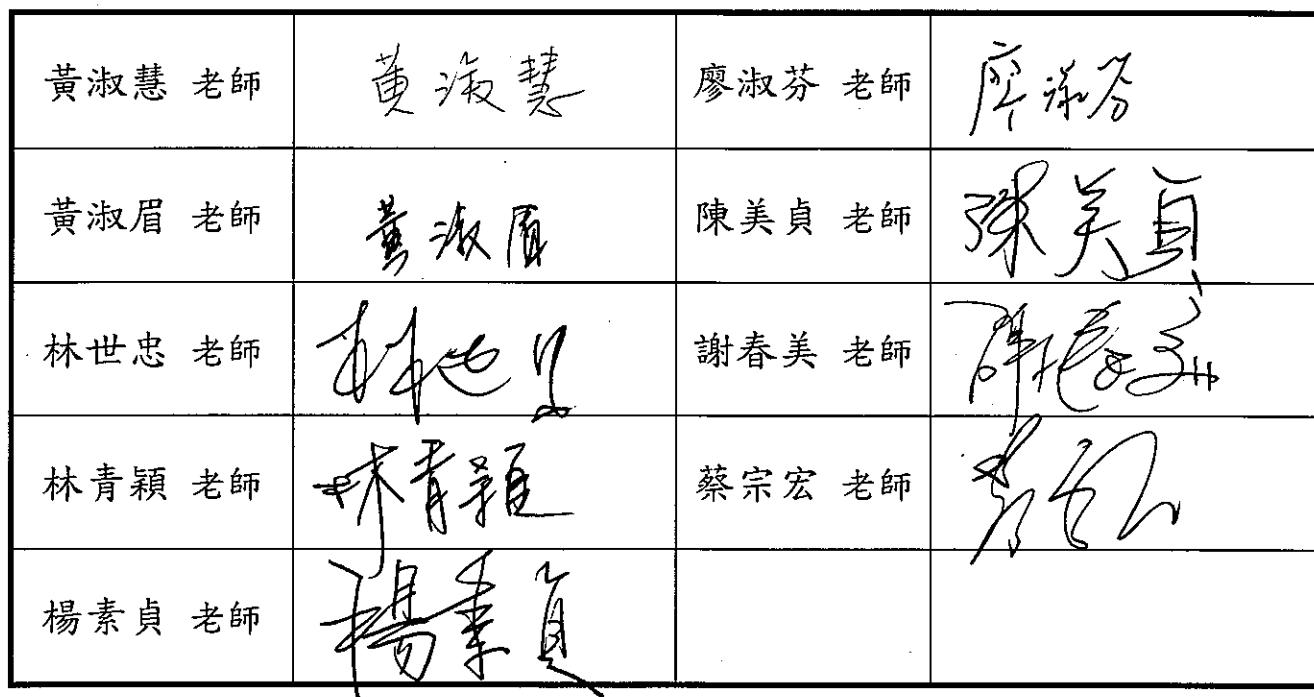 黃淑慧 老師 黃淑慧 廖淑芬 老師 廖淑芬
黃淑眉 老師 黃淑眉 陳美貞 老師 陳美貞
林世忠 老師 林世忠 謝春美 老師 謝春美
林青穎 老師 林青穎 蔡宗宏 老師
楊素貞 老師 楊素貞